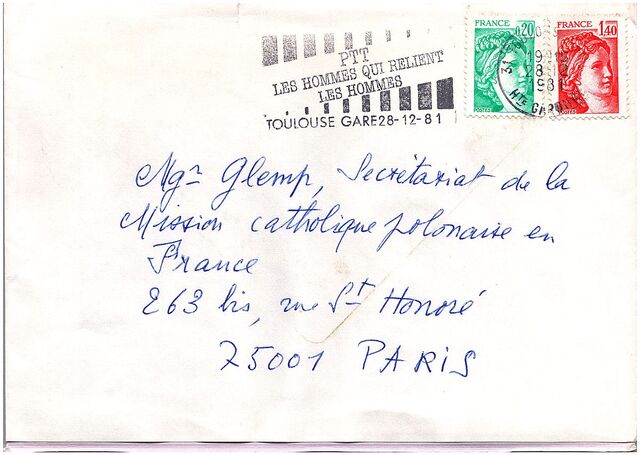 PTT
LES HOMMES QUI RELIENT
LES HOMMES
TOULOUSE GARE 28-12-81
FRANCE 0,20
FRANCE 1,40
POSTES
POSTES
31
28
81
HTE GARONNE
Mgr Glemp, Secrétariat de la
Mission catholique polonaise en
France
263 bis, rue St Honoré
75001 PARIS